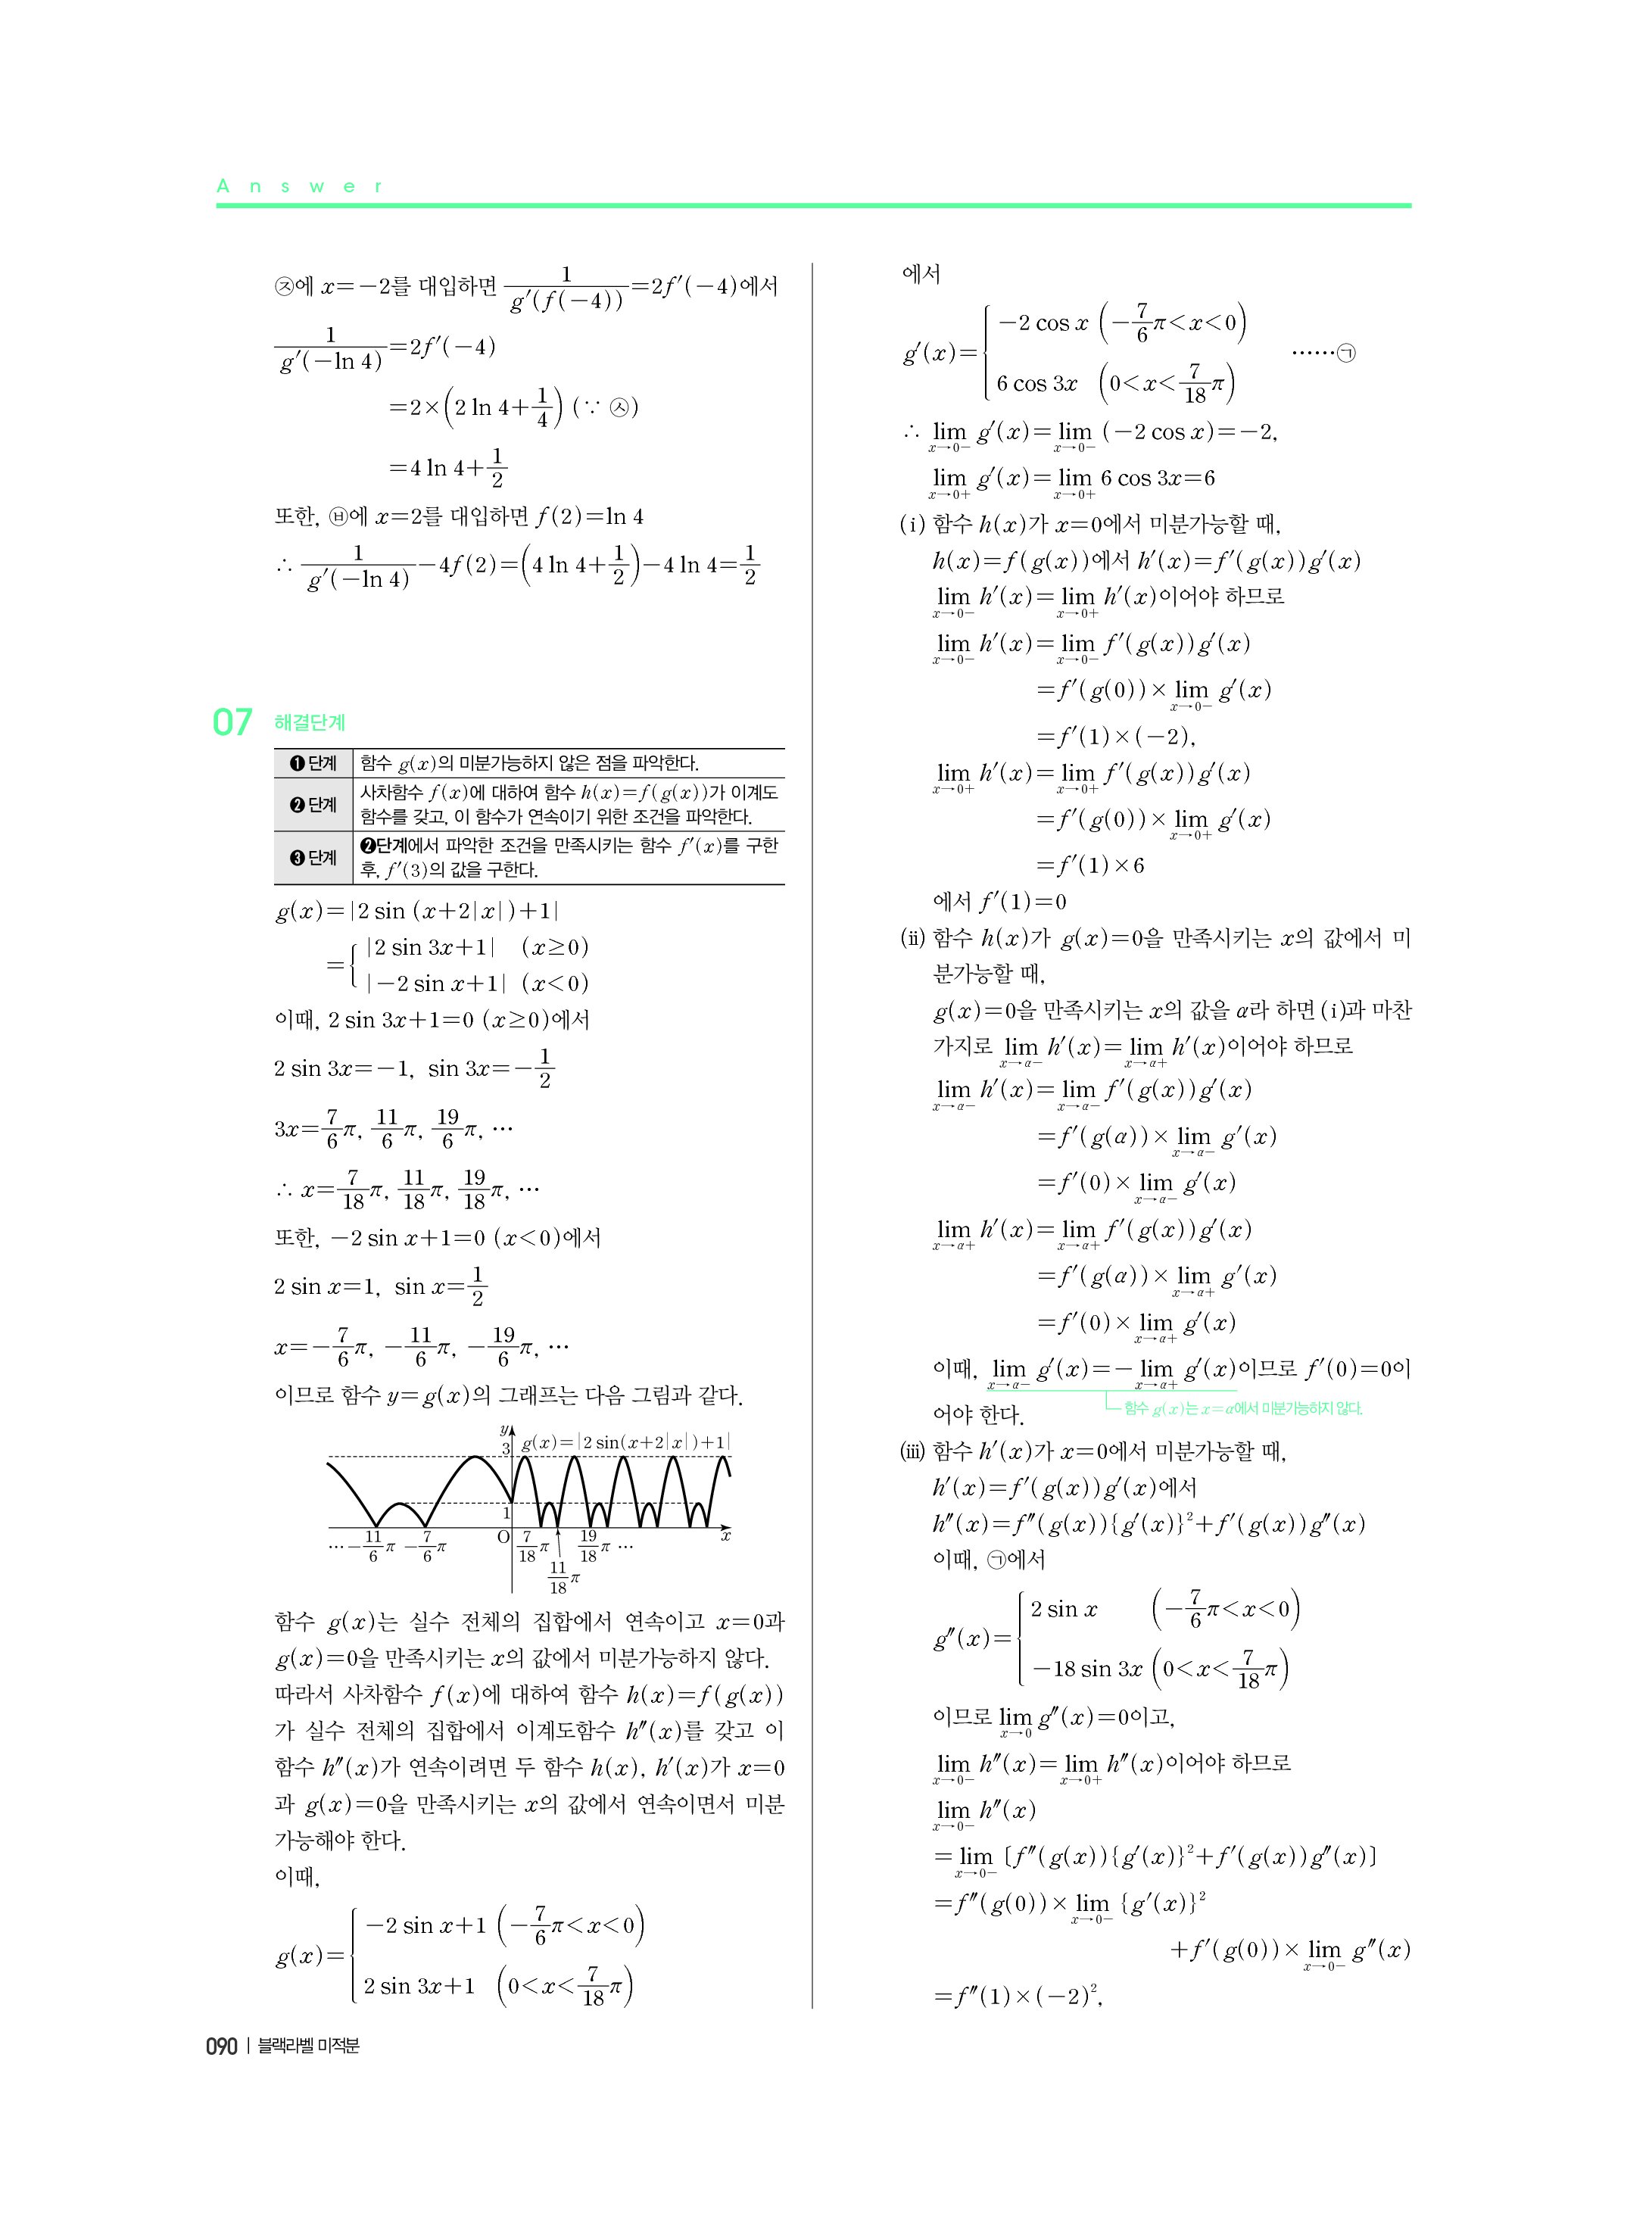 Answer
㉨에 x=-2를 대입하면 1/g′(f(-4))=2f′(-4)에서
1/g′(-ln 4)=2f′(-4)
=2×(2 ln 4+1/4) (∵ ㉦)
=4 ln 4+1/2
또한, ㉥에 x=2를 대입하면 f(2)=ln 4
∴ 1/g′(-ln 4)-4f(2)=(4 ln 4+1/2)-4 ln 4=1/2
07 해결단계
❶ 단계 함수 g(x)의 미분가능하지 않은 점을 파악한다.
❷ 단계 사차함수 f(x)에 대하여 함수 h(x)=f(g(x))가 이계도
함수를 갖고, 이 함수가 연속이기 위한 조건을 파악한다.
❸ 단계 ❷단계에서 파악한 조건을 만족시키는 함수 f′(x)를 구한
후, f′(3)의 값을 구한다.
g(x)=|2 sin (x+2|x|)+1|
={ |2 sin 3x+1| (x≥0)
|-2 sin x+1| (x<0)
이때, 2 sin 3x+1=0 (x≥0)에서
2 sin 3x=-1, sin 3x=-1/2
3x=7/6π, 11/6π, 19/6π, …
∴ x=7/18π, 11/18π, 19/18π, …
또한, -2 sin x+1=0 (x<0)에서
2 sin x=1, sin x=1/2
x=-7/6π, -11/6π, -19/6π, …
이므로 함수 y=g(x)의 그래프는 다음 그림과 같다.
y
3 g(x)=|2 sin(x+2|x|)+1|
1
…-11/6π -7/6π O 7/18π 19/18π … x
11/18π
함수 g(x)는 실수 전체의 집합에서 연속이고 x=0과
g(x)=0을 만족시키는 x의 값에서 미분가능하지 않다.
따라서 사차함수 f(x)에 대하여 함수 h(x)=f(g(x))
가 실수 전체의 집합에서 이계도함수 h″(x)를 갖고 이
함수 h″(x)가 연속이려면 두 함수 h(x), h′(x)가 x=0
과 g(x)=0을 만족시키는 x의 값에서 연속이면서 미분
가능해야 한다.
이때,
g(x)={ -2 sin x+1 (-7/6π<x<0)
2 sin 3x+1 (0<x<7/18π)
에서
g′(x)={ -2 cos x (-7/6π<x<0)
6 cos 3x (0<x<7/18π) ……㉠
∴ lim x→0- g′(x)=lim x→0- (-2 cos x)=-2,
lim x→0+ g′(x)=lim x→0+ 6 cos 3x=6
(ⅰ) 함수 h(x)가 x=0에서 미분가능할 때,
h(x)=f(g(x))에서 h′(x)=f′(g(x))g′(x)
lim x→0- h′(x)=lim x→0+ h′(x)이어야 하므로
lim x→0- h′(x)=lim x→0- f′(g(x))g′(x)
=f′(g(0))×lim x→0- g′(x)
=f′(1)×(-2),
lim x→0+ h′(x)=lim x→0+ f′(g(x))g′(x)
=f′(g(0))×lim x→0+ g′(x)
=f′(1)×6
에서 f′(1)=0
(ⅱ) 함수 h(x)가 g(x)=0을 만족시키는 x의 값에서 미
분가능할 때,
g(x)=0을 만족시키는 x의 값을 α라 하면 (ⅰ)과 마찬
가지로 lim x→α- h′(x)=lim x→α+ h′(x)이어야 하므로
lim x→α- h′(x)=lim x→α- f′(g(x))g′(x)
=f′(g(α))×lim x→α- g′(x)
=f′(0)×lim x→α- g′(x)
lim x→α+ h′(x)=lim x→α+ f′(g(x))g′(x)
=f′(g(α))×lim x→α+ g′(x)
=f′(0)×lim x→α+ g′(x)
이때, lim x→α- g′(x)=-lim x→α+ g′(x)이므로 f′(0)=0이
어야 한다. 함수 g(x)는 x=α에서 미분가능하지 않다.
(ⅲ) 함수 h′(x)가 x=0에서 미분가능할 때,
h′(x)=f′(g(x))g′(x)에서
h″(x)=f″(g(x)){g′(x)}²+f′(g(x))g″(x)
이때, ㉠에서
g″(x)={ 2 sin x (-7/6π<x<0)
-18 sin 3x (0<x<7/18π)
이므로 lim x→0 g″(x)=0이고,
lim x→0- h″(x)=lim x→0+ h″(x)이어야 하므로
lim x→0- h″(x)
=lim x→0- [f″(g(x)){g′(x)}²+f′(g(x))g″(x)]
=f″(g(0))×lim x→0- {g′(x)}²
+f′(g(0))×lim x→0- g″(x)
=f″(1)×(-2)²,
090 | 블랙라벨 미적분